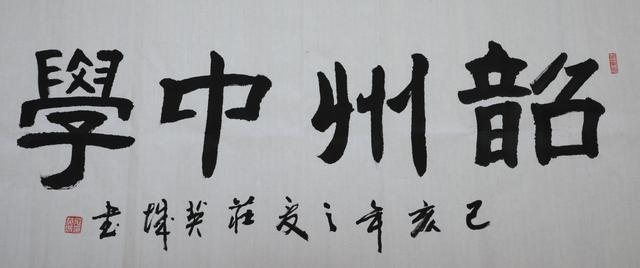 韶州中學
己亥年之夏莊英城書